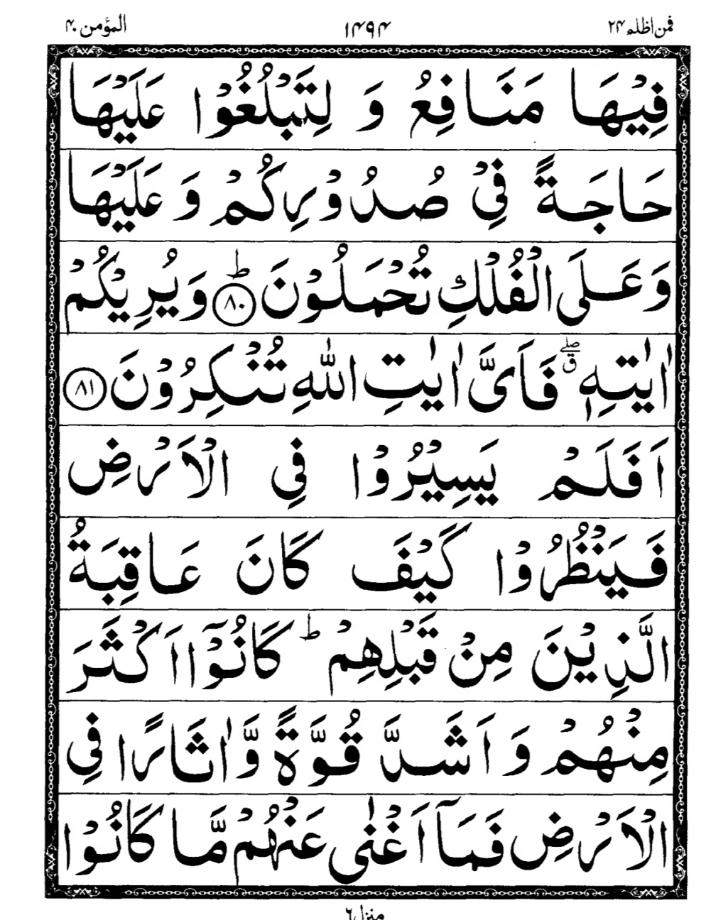 المؤمن ۴۰ ۱۴۹۴ فمن اظلم ۲۴
فِيْهَا مَنَافِعُ وَ لِتَبْلُغُوْا عَلَيْهَا
حَاجَةً فِيْ صُدُوْرِكُمْ وَ عَلَيْهَا
وَ عَلَى الْفُلْكِ تُحْمَلُوْنَ ؕ ﴿۸۰﴾ وَ يُرِيْكُمْ
اٰيٰتِهٖ ۖۗ فَاَيَّ اٰيٰتِ اللّٰهِ تُنْكِرُوْنَ ﴿۸۱﴾
اَفَلَمْ يَسِيْرُوْا فِي الْاَرْضِ
فَيَنْظُرُوْا كَيْفَ كَانَ عَاقِبَةُ
الَّذِيْنَ مِنْ قَبْلِهِمْ ؕ كَانُوْۤا اَكْثَرَ
مِنْهُمْ وَ اَشَدَّ قُوَّةً وَّ اٰثَارًا فِي
الْاَرْضِ فَمَاۤ اَغْنٰى عَنْهُمْ مَّا كَانُوْا
منزل ۶